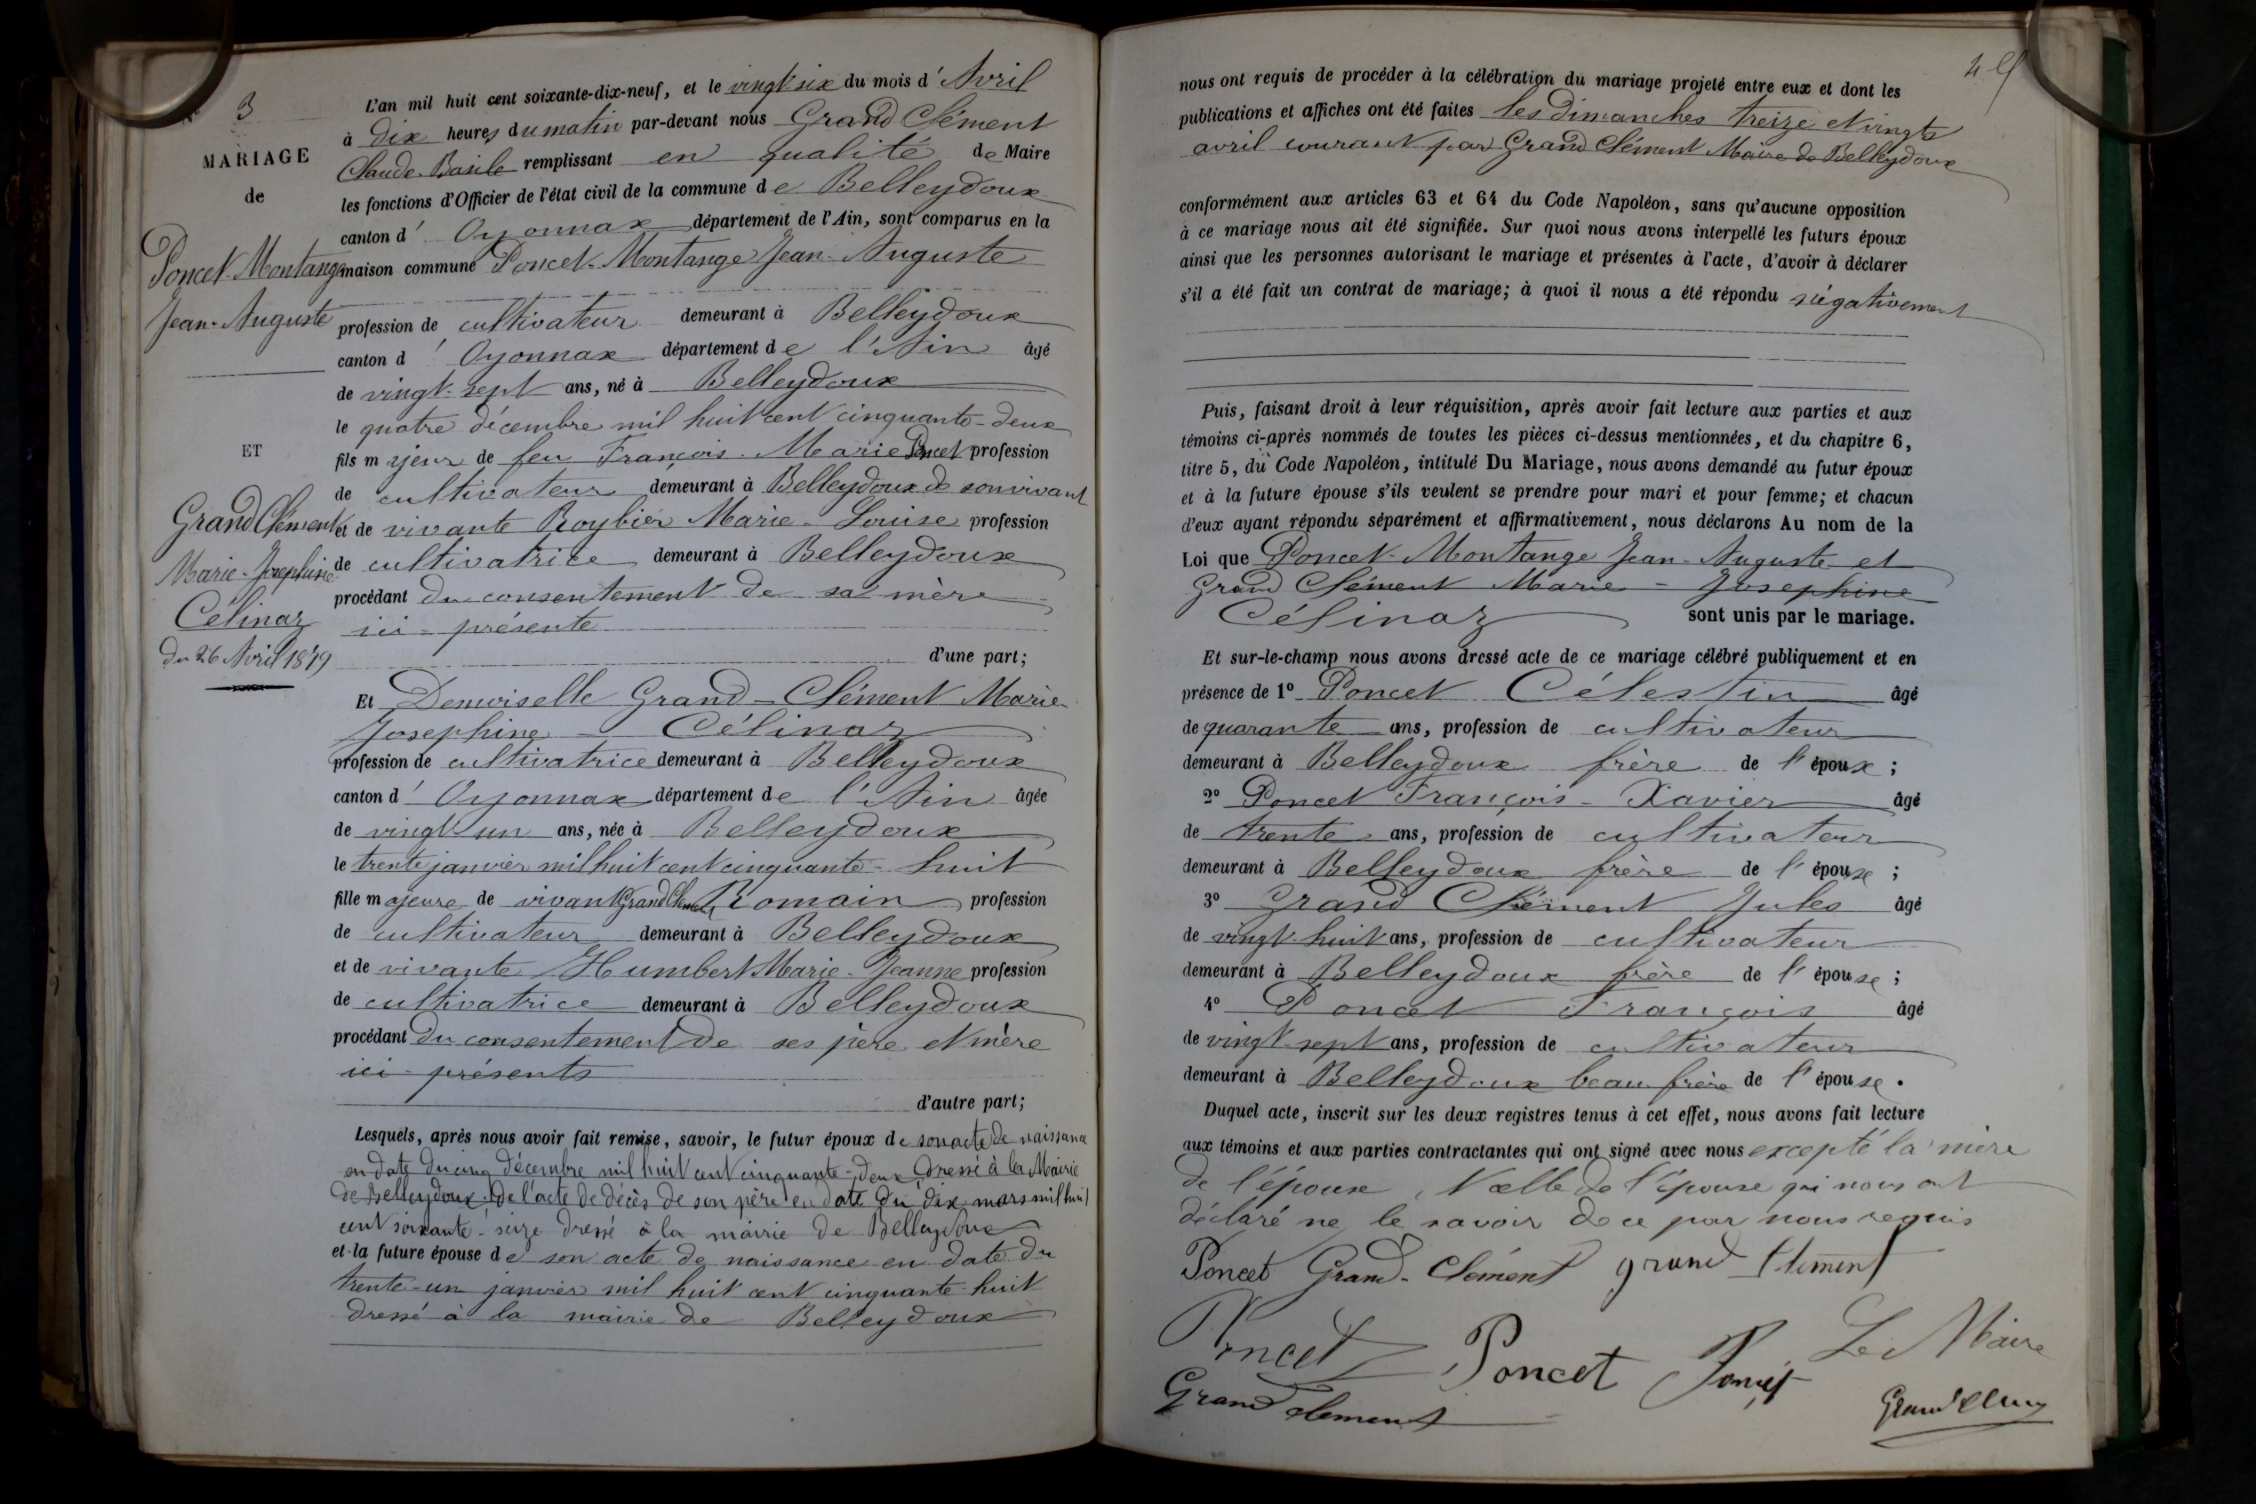 N° 3
MARIAGE
de
Poncet-Montange
Jean-Auguste
ET
Grand Clément
Marie-Josephine
Célinaz
Du 26 Avril 1879
L'an mil huit cent soixante-dix-neuf, et le vingt six du mois d'Avril
à dix heures du matin par-devant nous Grand Clément
Claude-Basile remplissant en qualité de Maire
les fonctions d'Officier de l'état civil de la commune de Belleydoux
canton d'Oyonnax département de l'Ain, sont comparus en la
maison commune Poncet-Montange Jean-Auguste
profession de cultivateur demeurant à Belleydoux
canton d'Oyonnax département de l'Ain âgé
de vingt-sept ans, né à Belleydoux
le quatre décembre mil huit cent cinquante-deux
fils majeur de feu François-Marie Poncet profession
de cultivateur demeurant à Belleydoux de son vivant
et de vivante Roybier Marie-Louise profession
de cultivatrice demeurant à Belleydoux
procédant du consentement de sa mère
ici-présente
d'une part;
Et Demoiselle Grand-Clément Marie
Josephine - Célinaz
profession de cultivatrice demeurant à Belleydoux
canton d'Oyonnax département de l'Ain âgée
de vingt-un ans, née à Belleydoux
le trente janvier mil huit cent cinquante-huit
fille majeure de vivant Grand Clément Romain profession
de cultivateur demeurant à Belleydoux
et de vivante Humbert Marie-Jeanne profession
de cultivatrice demeurant à Belleydoux
procédant du consentement de ses père et mère
ici-présents
d'autre part;
Lesquels, après nous avoir fait remise, savoir, le futur époux de son acte de naissance
en date du cinq décembre mil huit cent cinquante-deux dressé à la Mairie
de Belleydoux. De l'acte de décès de son père en date du dix mars mil huit
cent soixante-seize dressé à la mairie de Belleydoux
et la future épouse de son acte de naissance en date du
trente-un janvier mil huit cent cinquante-huit
dressé à la mairie de Belleydoux
nous ont requis de procéder à la célébration du mariage projeté entre eux et dont les
publications et affiches ont été faites les Dimanches treize et vingt
avril courant par Grand Clément Maire de Belleydoux
conformément aux articles 63 et 64 du Code Napoléon, sans qu'aucune opposition
à ce mariage nous ait été signifiée. Sur quoi nous avons interpellé les futurs époux
ainsi que les personnes autorisant le mariage et présentes à l'acte, d'avoir à déclarer
s'il a été fait un contrat de mariage; à quoi il nous a été répondu négativement
Puis, faisant droit à leur réquisition, après avoir fait lecture aux parties et aux
témoins ci-après nommés de toutes les pièces ci-dessus mentionnées, et du chapitre 6,
titre 5, du Code Napoléon, intitulé Du Mariage, nous avons demandé au futur époux
et à la future épouse s'ils veulent se prendre pour mari et pour femme; et chacun
d'eux ayant répondu séparément et affirmativement, nous déclarons Au nom de la
Loi que Poncet-Montange Jean-Auguste et
Grand Clément Marie - Josephine
Célinaz sont unis par le mariage.
Et sur-le-champ nous avons dressé acte de ce mariage célébré publiquement et en
présence de 1° Poncet Célestin âgé
de quarante ans, profession de cultivateur
demeurant à Belleydoux frère de l'époux;
2° Poncet François-Xavier âgé
de trente ans, profession de cultivateur
demeurant à Belleydoux frère de l'épouse;
3° Grand Clément Jules âgé
de vingt-huit ans, profession de cultivateur
demeurant à Belleydoux frère de l'épouse;
4° Poncet François âgé
de vingt-sept ans, profession de cultivateur
demeurant à Belleydoux beau-frère de l'épouse.
Duquel acte, inscrit sur les deux registres tenus à cet effet, nous avons fait lecture
aux témoins et aux parties contractantes qui ont signé avec nous excepté la mère
de l'époux et celle de l'épouse qui nous ont
déclaré ne le savoir de ce par nous requis
Poncet Grand-Clément grand Clement
Poncet Poncet Poncet Le Maire
Grand clement Grand Clément